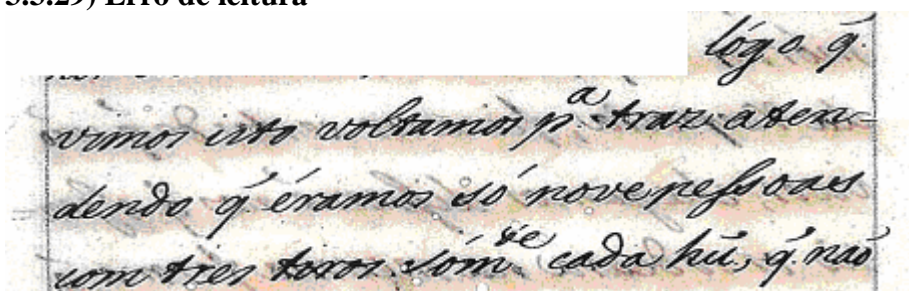 3.3.29) Erro de leitura
lógo q̃.
vimos isto voltamos p.ª traz, aten-
dendo q̃ éramos só nove pessoas
com tres toros sóm.te cada hũ, q̃. não